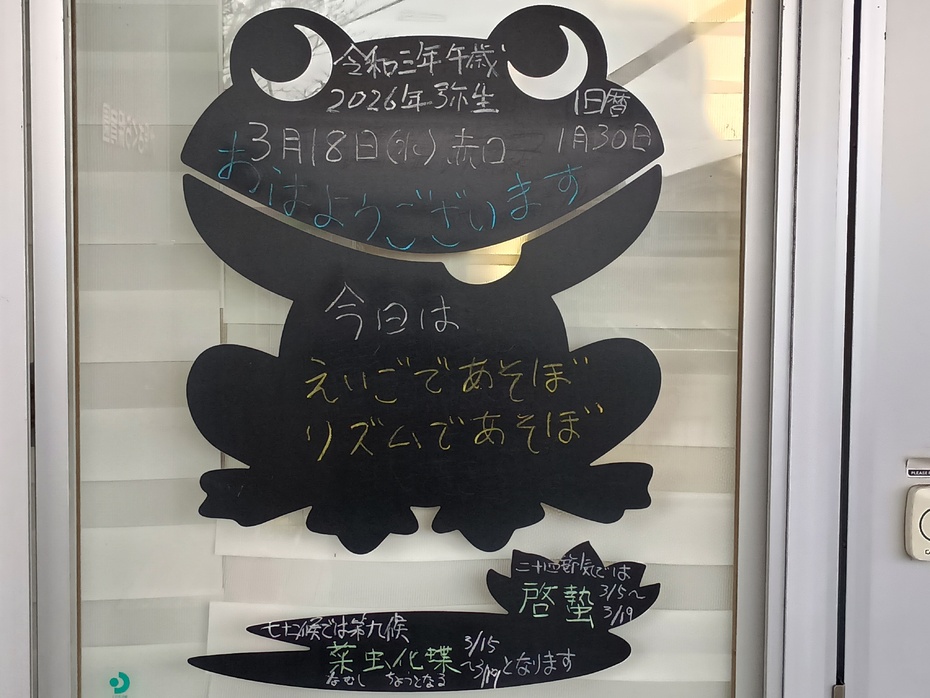 令和三年午歳
2026年弥生
旧暦
3月18日(水)赤口
1月30日
おはようございます
今日は
えいごであそぼ
リズムであそぼ
二十四節気では
啓蟄 3/5〜3/19
七十二候では第九候
菜虫化蝶 3/15〜3/19となります
なむし ちょうとなる